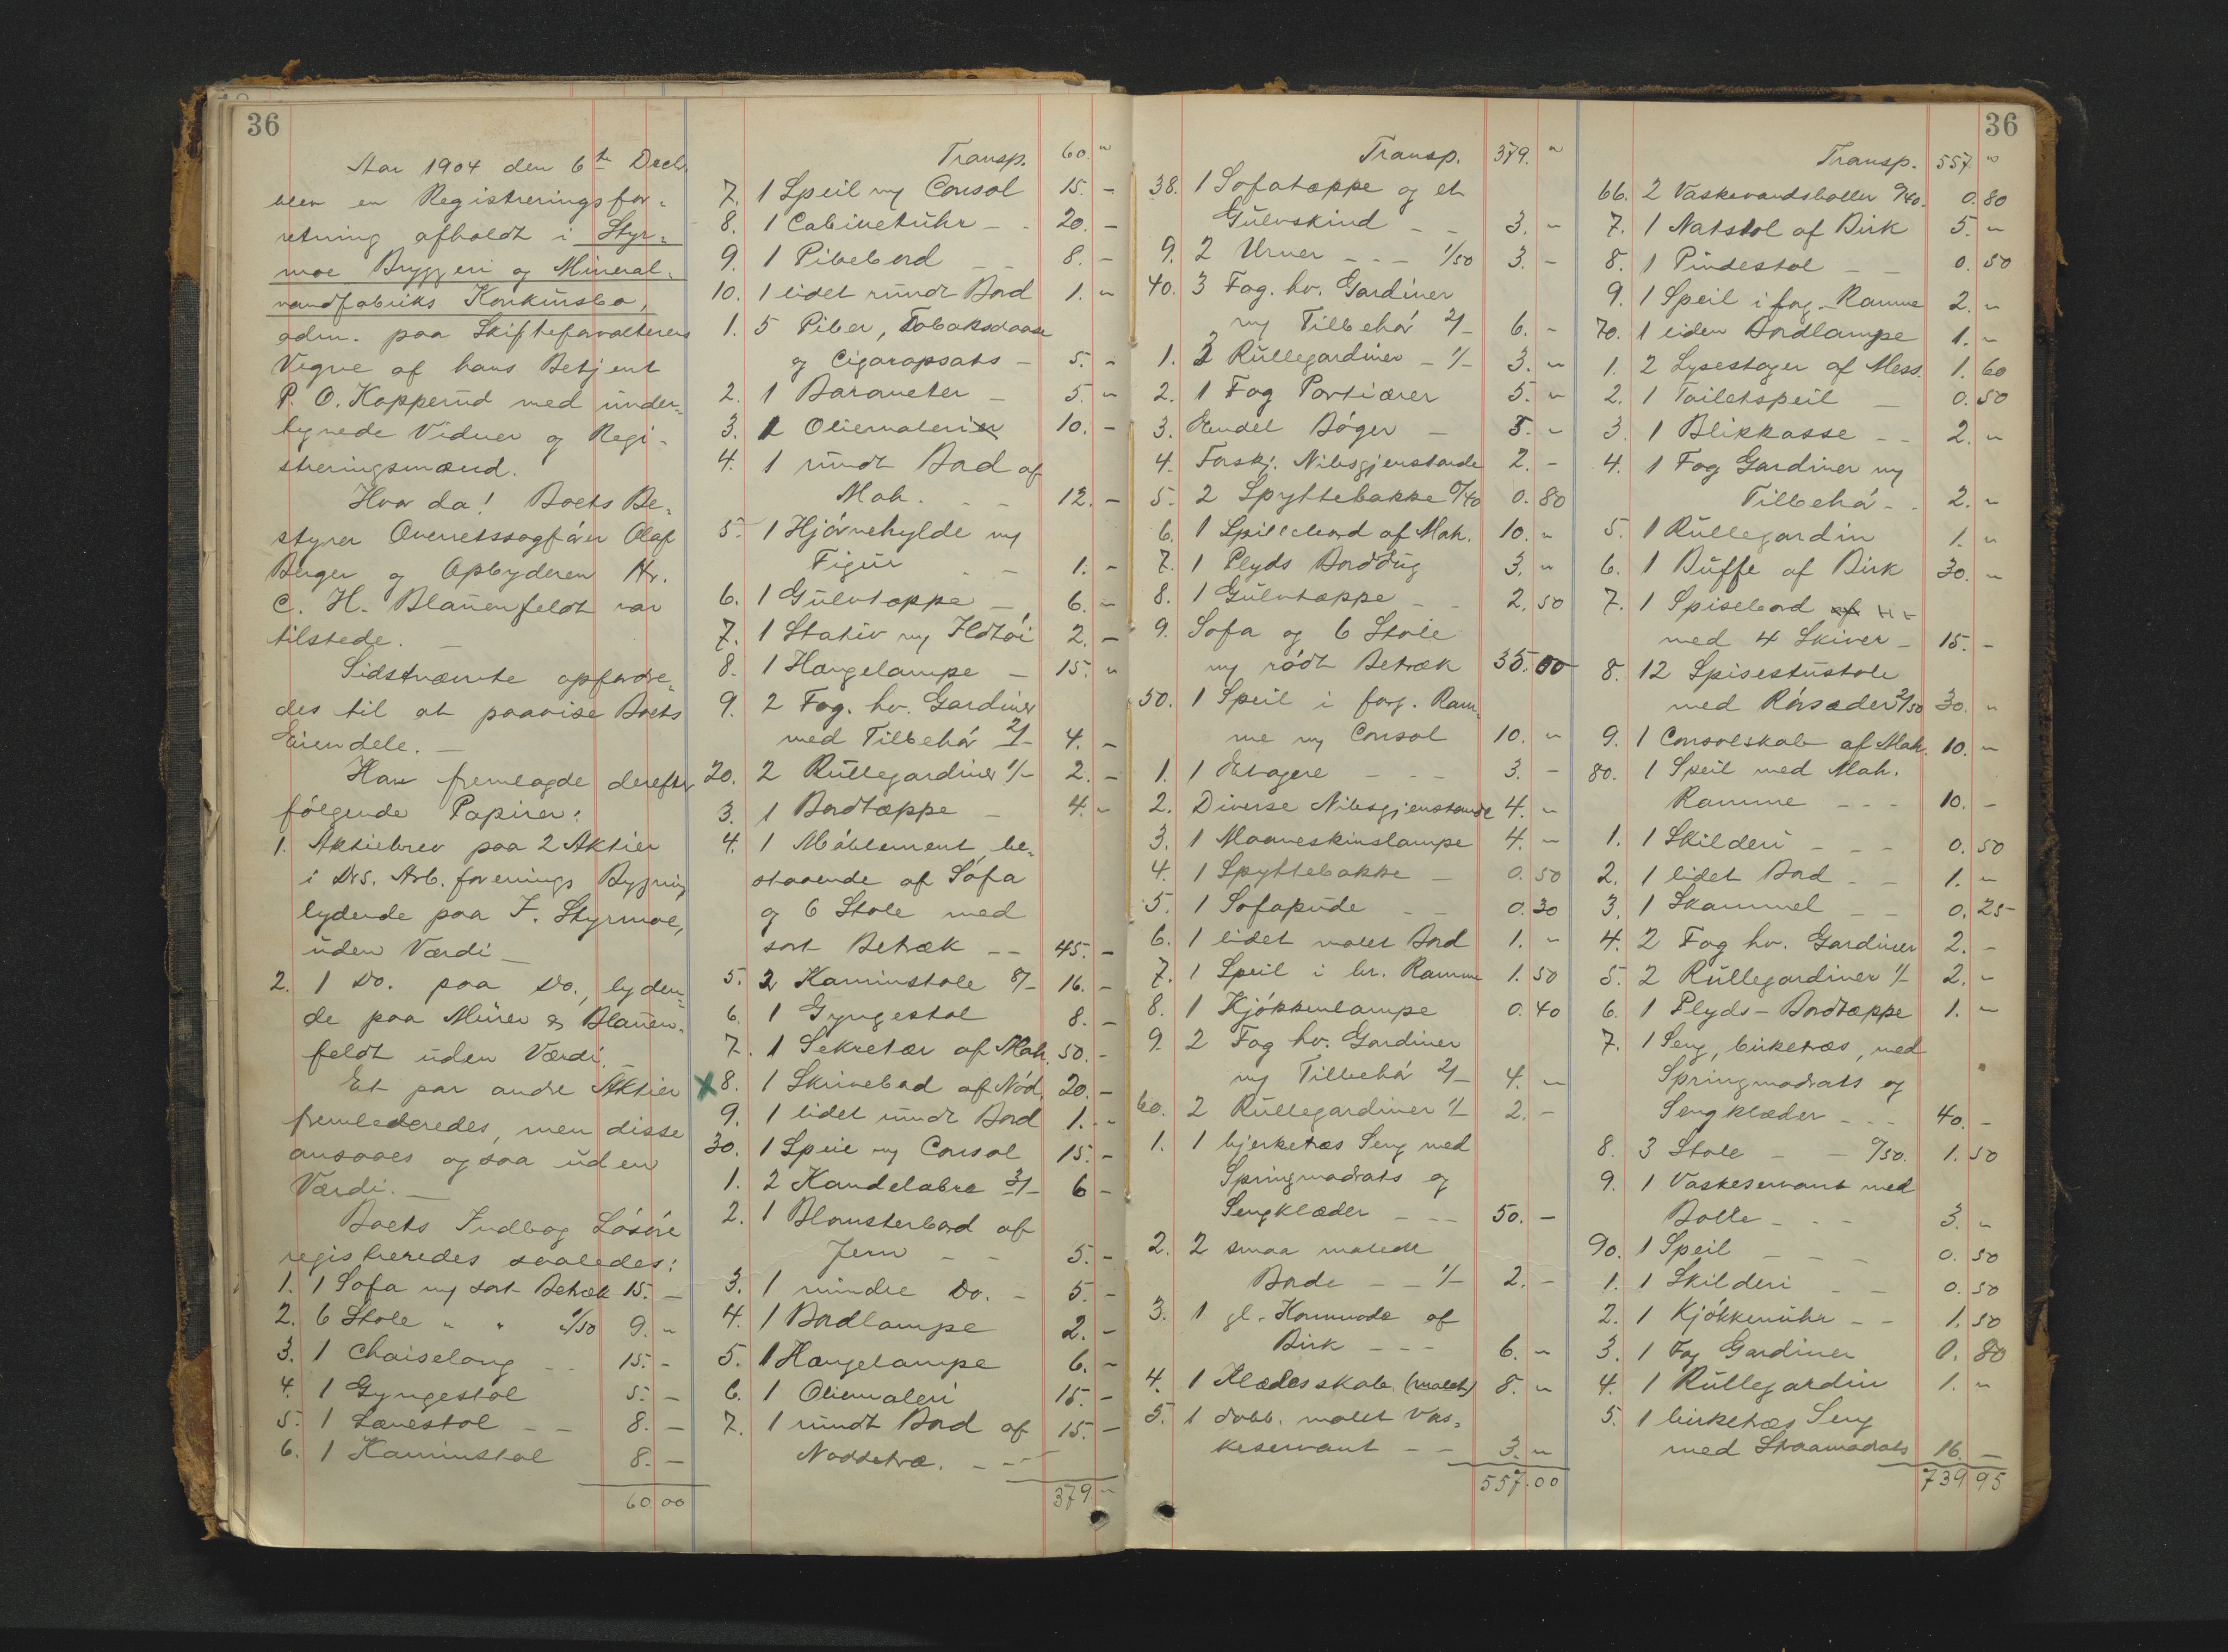 36
Aar 1904 den 6te Decb.
blev en Registreringsfor-
retning afholdt i Styr-
moe Bryggeri og Mineral-
vandfabriks Konkursbo,
adm. paa Skifteforvalterens
Vegne af hans Betjent
P. O. Kopperud med under-
tegnede Vidner og Regi-
streringsmænd.
Hvor da! Boets Be-
styrer Overretssagfører Olaf
Berger og Opbyderen Hr.
C. H. Blauenfeldt var
tilstede. —
Sidstnævnte opfordre-
des til at paavise Boets
Eiendele. —
Han fremlagde derefter
følgende Papirer:
1. Aktiebrev paa 2 Aktier
i Drs. Arb. forenings Bygning
lydende paa F. Styrmoe,
uden Værdi —
2. 1 Do. paa Do., lyden-
de paa Meyer & Blauen-
feldt uden Værdi. —
Et par andre Aktier
fremlederedes, men disse
ansaaes ogsaa uden
Værdi. —
Boets Indbo og Løsøre
registreredes saaledes:
1. 1 Sofa m/ sort Betræk 15. —
2. 6 Stole " " 1/50 9. "
3. 1 Chaiselong - - 15. -
4. 1 Gyngestol 5. —
5. 1 Lænestol - - 8. —
6. 1 Kaminstol 8. —
60 00
Transp. 60. "
7. 1 Speil m/ Consol 15. -
8. 1 Cabinetuhr - - 20. -
9. 1 Pibebord - - 8. -
10. 1 lidet rundt Bord 1. "
1. 5 Piber, Tobaksdaase
og Cigaropsats - 5. -
2. 1 Barometer - 5. "
3. 1 Oliemaleri 10. -
4. 1 rundt Bord af
Mah. - - 12. -
5. 1 Hjørnehylde m/
Figur - - 1. -
6. 1 Gulvtæppe - 6. "
7. 1 Stativ m/ Ildtøi 2. -
8. 1 Hængelampe - 15. "
9. 2 Fag. hv. Gardiner
med Tilbehør 2/- 4. -
20. 2 Rullegardiner 1/- 2. -
3. 1 Bordtæppe - 4. "
4. 1 Møblement be-
staaende af Sofa
og 6 Stole med
sort Betræk - - 45. -
5. 2 Kaminstole 8/- 16. -
6. 1 Gyngestol 8. -
7. 1 Sekretær af Mah. 50. -
x 8. 1 Skrivebord af Nød. 20. -
9. 1 lidet rundt Bord 1. -
30. 1 Speil m/ Consol 15. -
1. 2 Kandelabre 3/- 6 -
2. 1 Blomsterbord af
Jern - - 5. -
3. 1 mindre Do. - 5. -
4. 1 Bordlampe 2. -
5. 1 Hængelampe 6. -
6. 1 Oliemaleri 15. -
7. 1 rundt Bord af 15. -
Nøddetræ. - -
379 "
36
Transp. 379. "
38. 1 Sofatæppe og et
Gulvskind - - 3. "
9. 2 Urner - - - 1/50 3. -
40. 3 Fag. hv. Gardiner
m/ Tilbehør 2/- 6. -
1. 3 Rullegardiner - 1/- 3. "
2. 1 Fag Portiærer 5. "
3. Endel Bøger - 5. "
4. Forskj. Nibsgjenstande 2. -
5. 2 Spyttebakke 0/40 0. 80
6. 1 Spillebord af Mah. 10. "
7. 1 Plyds Borddug 3. "
8. 1 Gulvtæppe - - 2. 50
9. Sofa og 6 Stole
m/ rødt Betræk 35. 00
50. 1 Speil i forg. Ram-
me m/ Consol 10. "
1. 1 Etagere - - - 3. -
2. Diverse Nibsgjenstande 4. "
3. 1 Maaneskinslampe 4. "
4. 1 Spyttebakke - 0. 50
5. 1 Sofapude - - 0. 30
6. 1 lidet malet Bord 1. "
7. 1 Speil i br. Ramme 1. 50
8. 1 Kjøkkenlampe 0. 40
9. 2 Fag hv. Gardiner
m/ Tilbehør 2/- 4. "
60. 2 Rullegardiner 1/- 2. -
1. 1 bjerketræs Seng med
Springmadrats og
Sengklæder - - - 50. -
2. 2 smaa malede
Borde - - 1/- 2. -
3. 1 gl. Kommode af
Birk - - - 6. "
4. 1 Klædesskab (malet) 8. "
5. 1 dobb. malet Vas-
keservant - - 3. "
557.00
Transp. 557. "
66. 2 Vaskevandsboller 0/40. 0. 80
7. 1 Natstol af Birk 5. "
8. 1 Pindestol - - 0. 50
9. 1 Speil i forg. Ramme 2. "
70. 1 liden Bordlampe 1. "
1. 2 Lysestager af Mess. 1. 60
2. 1 Toiletspeil - 0. 50
3. 1 Blikkasse - - 2. "
4. 1 Fag Gardiner m/
Tilbehør - - 2. "
5. 1 Rullegardin 1. "
6. 1 Buffe af Birk 30. "
7. 1 Spisebord af
med 4 Skiver - 15. -
8. 12 Spisestustole
med Rørsæder 2/50 30. "
9. 1 Consolskab af Mah. 10. "
80. 1 Speil med Mah.
Ramme - - - 10. -
1. 1 Skilderi - - - 0. 50
2. 1 lidet Bord - - 1. "
3. 1 Skammel - - 0. 25
4. 2 Fag hv. Gardiner 2. -
5. 2 Rullegardiner 1/- 2. "
6. 1 Plyds - Bordtæppe 1. "
7. 1 Seng, birketræs, med
Springmadrats og
Sengklæder - - - 40. -
8. 3 Stole - - 0/50. 1. 50
9. 1 Vaskeservant med
Bolle - - - 3. "
90. 1 Speil - - - 0. 50
1. 1 Skilderi - - 0. 50
2. 1 Kjøkkenuhr - - 1. 50
3. 1 Fag Gardiner 0. 80
4. 1 Rullegardin 1. "
5. 1 birketræs Seng
med Straamadrats 16. -
739 95